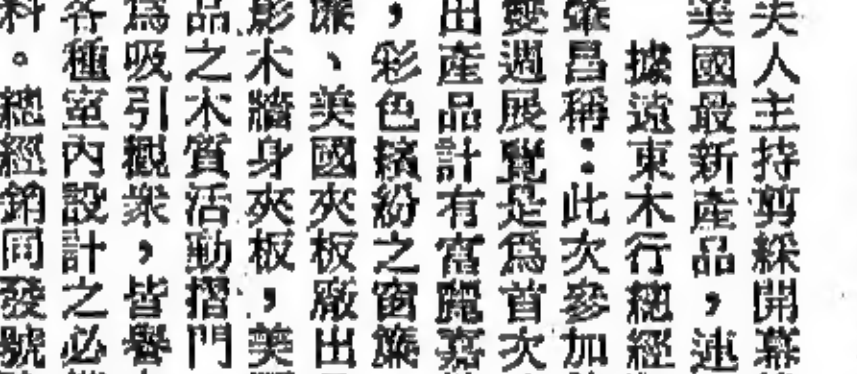 夫人主持剪綵開幕
美國最新產品，連
據遠東木行總經
肇昌稱：此次參加
雙週展覽是為首次
出產品計有富麗嘉
，彩色繽紛之窗簾
簾、美國夾板廠出
彫木牆身夾板，美
品之木質活動摺門
為吸引觀衆，皆譽
各種室內設計之必
料。總經銷同發號